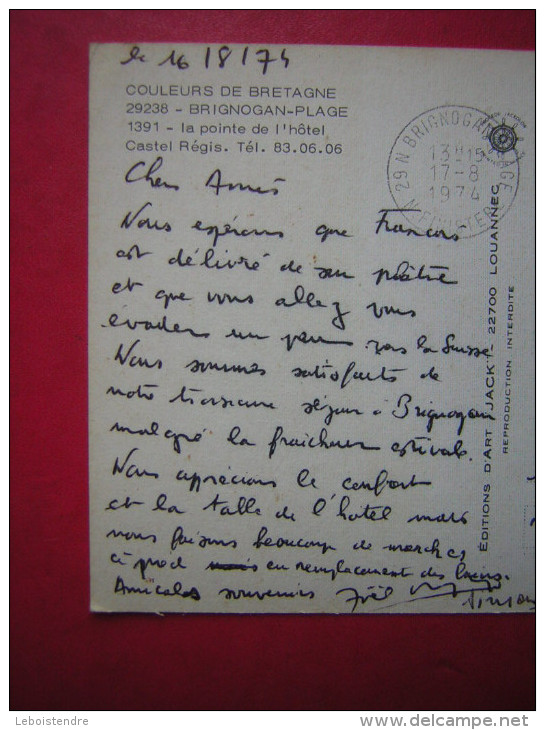 le 16/8/74
COULEURS DE BRETAGNE
29238 - BRIGNOGAN-PLAGE
1391 - la pointe de l'hôtel
Castel Régis. Tél. 83.06.06
29 N BRIGNOGAN PLAGE
13H15
17-8
1974
N-FINISTERE
Chers Amis
Nous espérons que François
est délivré de son plâtre
et que vous allez vous
évader un peu vers la Suisse
Nous sommes satisfaits de
notre troisième séjour à Brignogan
malgré la fraîcheur estivale.
Nous apprécions le confort
et la table de l'hôtel mais
nous faisons beaucoup de marches
à pied en remplacement des bains.
Amicales souvenirs Joël
EDITIONS D'ART "JACK" - 22700 LOUANNEC
REPRODUCTION INTERDITE
Leboistendre
www.delcampe.net